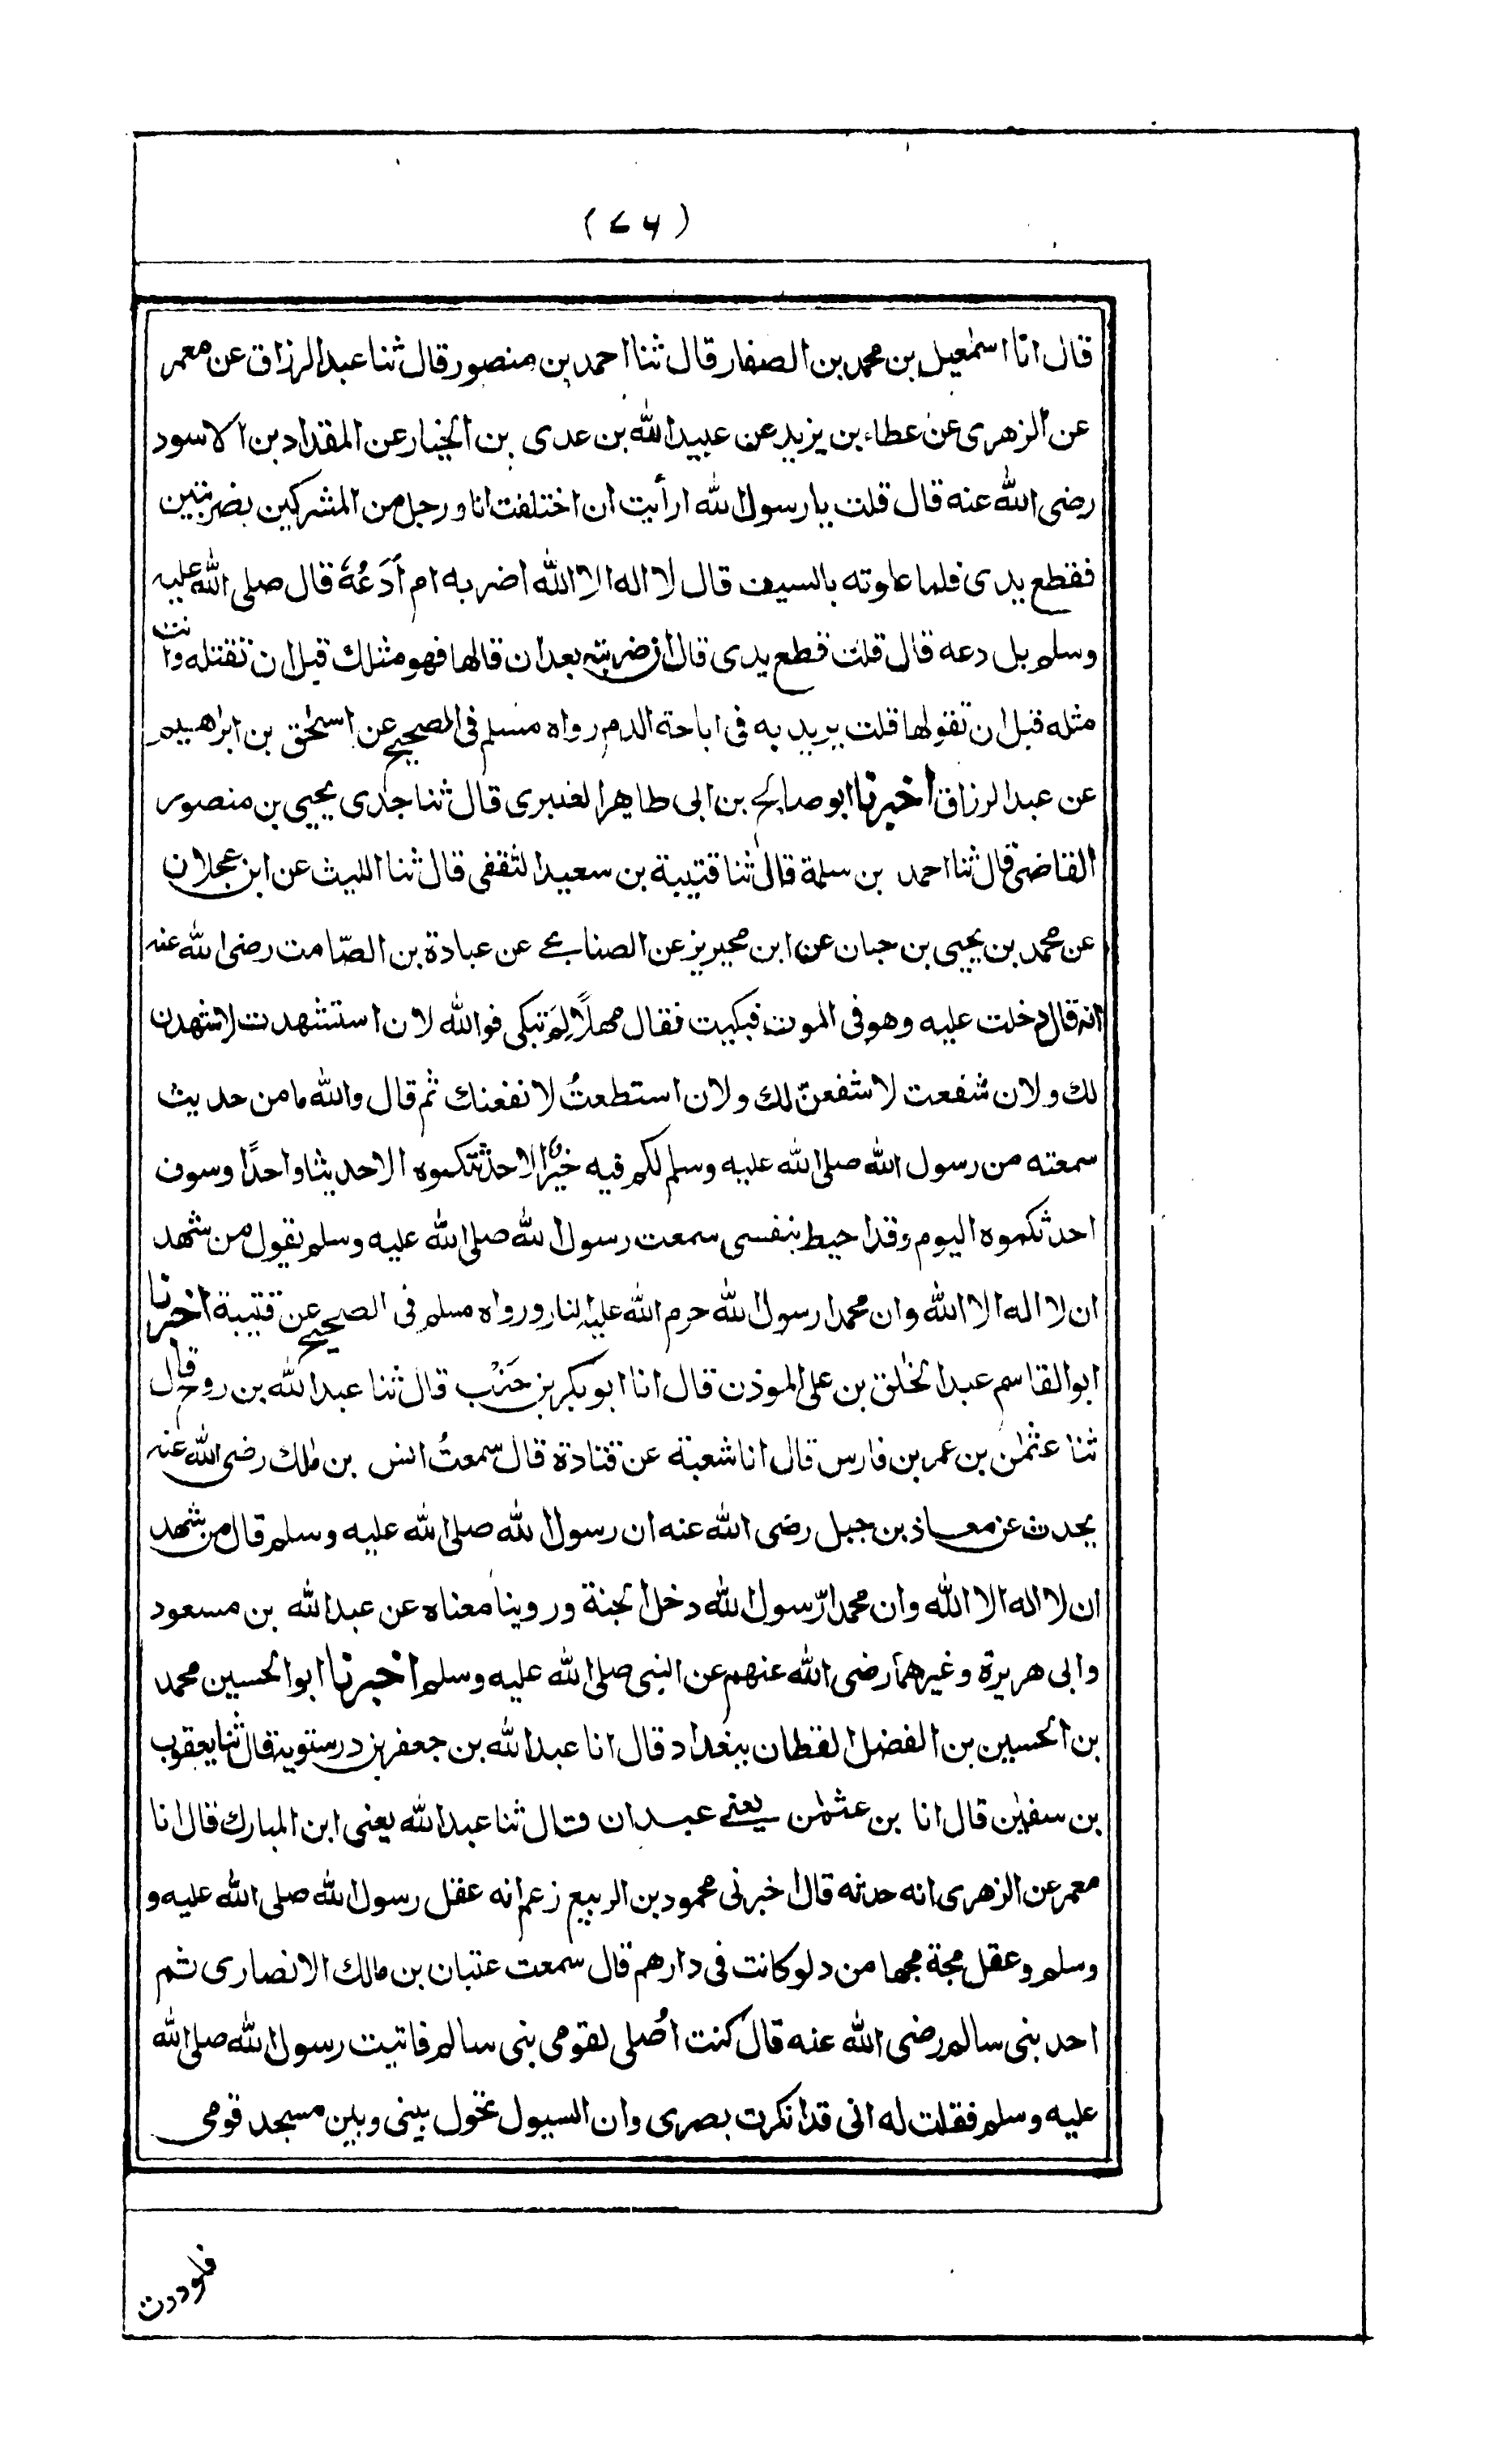 (۷۶)
قال انا اسمٰعيل بن محمد بن الصفار قال ثنا احمد بن منصور قال ثنا عبد الرزاق عن معمر
عن الزهرى عن عطاء بن يزيد عن عبيد الله بن عدى بن الخيار عن المقداد بن الاسود
رضى الله عنه قال قلت يا رسول الله ارأيت ان اختلفت انا و رجل من المشركين بضربتين
فقطع يدى فلما علوته بالسيف قال لا اله الا الله اضربه ام أدَعُهُ قال صلى الله عليه
وسلم بل دعه قال قلت قطع يدى قال ان ضربته بعد ان قالها فهو مثلك قبل ان تقتله وانت
مثله قبل ان تقولها قلت يريد به فى اباحة الدم رواه مسلم فى الصحيح عن اسحٰق بن ابراهيم
عن عبد الرزاق اخبرنا ابو صالح بن ابى طاهر العنبرى قال ثنا جدى يحيى بن منصور
القاضى قال ثنا احمد بن سلمة قال ثنا قتيبة بن سعيد الثقفى قال ثنا الليث عن ابن عجلان
عن محمد بن يحيى بن حبان عن ابن محيريز عن الصنابحى عن عبادة بن الصّامت رضى الله عنه
انه قال دخلت عليه وهو فى الموت فبكيت فقال مهلًا لِمَ تبكى فوالله لان استشهدت لاشهدن
لك ولان شفعت لاشفعنّ لك ولان استطعتُ لانفعنك ثم قال والله ما من حديث
سمعته من رسول الله صلى الله عليه وسلم لكم فيه خيرًا الا حدثتكموه الا حديثا واحدًا وسوف
احدثكموه اليوم وقد احيط بنفسى سمعت رسول الله صلى الله عليه وسلم يقول من شهد
ان لا اله الا الله وان محمدا رسول الله حرم الله عليه النار ورواه مسلم فى الصحيح عن قتيبة اخبرنا
ابو القاسم عبد الخٰلق بن على الموذن قال انا ابو بكر بن خَنْب قال ثنا عبد الله بن روح قال
ثنا عثمٰن بن عمر بن فارس قال انا شعبة عن قتادة قال سمعتُ انس بن مٰلك رضى الله عنه
يحدث عن معاذ بن جبل رضى الله عنه ان رسول الله صلى الله عليه وسلم قال من شهد
ان لا اله الا الله وان محمدا رّسول الله دخل الجنة وروينا معناه عن عبد الله بن مسعود
وابى هريرة وغيرهما رضى الله عنهم عن النبى صلى الله عليه وسلم اخبرنا ابو الحسين محمد
بن الحسين بن الفضل القطان ببغداد قال انا عبد الله بن جعفر بن درستويه قال ثنا يعقوب
بن سفيٰن قال انا بن عثمٰن يعنى عبدان قال ثنا عبد الله يعنى ابن المبارك قال انا
معمر عن الزهرى انه حدثه قال اخبرنى محمود بن الربيع زعم انه عقل رسول الله صلى الله عليه و
وسلم وعقل مجة مجها من دلو كانت فى دارهم قال سمعت عتبان بن مالك الانصارى ثم
احد بنى سالم رضى الله عنه قال كنت اُصلى لقومى بنى سالم فاتيت رسول الله صلى الله
عليه وسلم فقلت له انى قد انكرت بصرى وان السيول تحول بينى وبين مسجد قومى
فلوددت